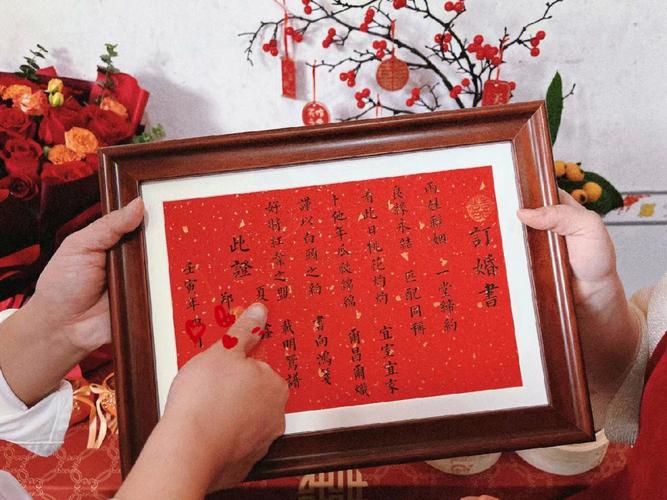 訂婚書
兩姓聯姻 一堂締約
良緣永結 匹配同稱
看此日桃花灼灼 宜室宜家
卜他年瓜瓞綿綿 爾昌爾熾
謹以白頭之約 書向鴻箋
好將紅葉之盟 載明鴛譜
此證
夏
郑
壬寅年